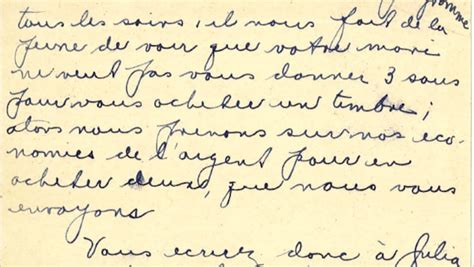 femme
tous les soirs; il nous fait de la
peine de voir que votre mari
ne veut pas vous donner 3 sous
pour vous acheter un timbre;
alors nous prenons sur nos eco-
nomies de l'argent pour en
acheter deux, que nous vous
envoyons
Vous ecriez donc à Julia